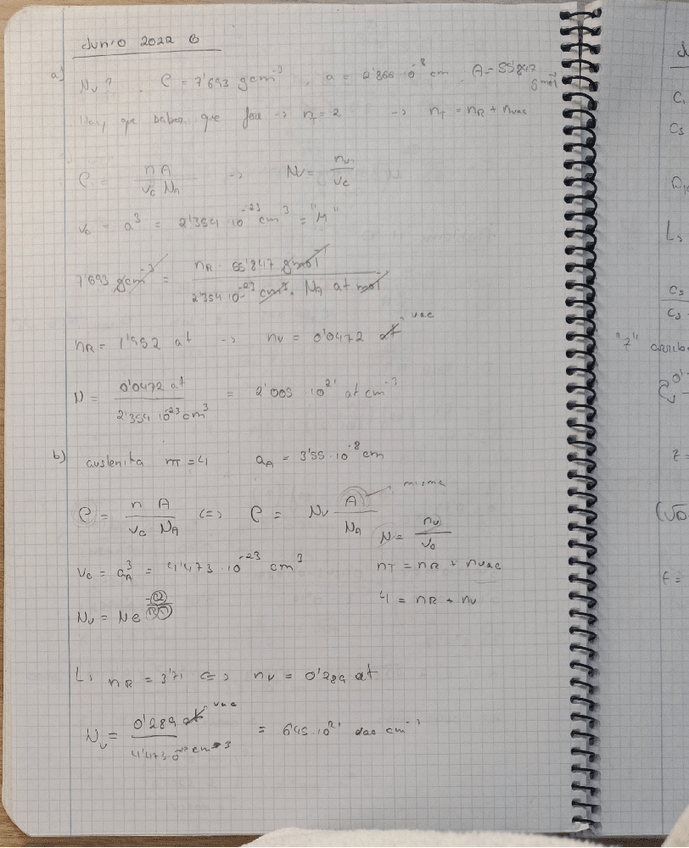 Junio 2022 B
a) Nv? ρ = 7'693 gcm⁻³ a = 2'866·10⁻⁸ cm A = 55'847 gmol⁻¹
Hay que saber que -> nT = 2 -> nT = nR + nvac
ρ = n A / Vc NA -> Nv = nv / Vc
Vc = a³ = 2'354 · 10⁻²³ cm³ = "M"
7'693 gcm⁻³ = nR · 55'847 gmol / 2'354 10⁻²³ cm³ · NA at mol
nR = 1'952 at -> nv = 0'0472 at vac
N = 0'0472 at / 2'354 10⁻²³ cm³ = 2'005 · 10²¹ at cm⁻³
b) austenita nT = 4 aA = 3'55·10⁻⁸ cm
misma
ρ = n A / Vc NA <=> ρ = Nv A / NA N = nv / Vc
Vc = aA³ = 4'473 · 10⁻²³ cm³ nT = nR + nvac
Nv = Ne 4 = nR + nv
L> nR = 3'71 <=> nv = 0'289 at
Nv = 0'289 at vac / 4'473·10⁻²³ cm³ = 6'45·10²¹ vac cm⁻³